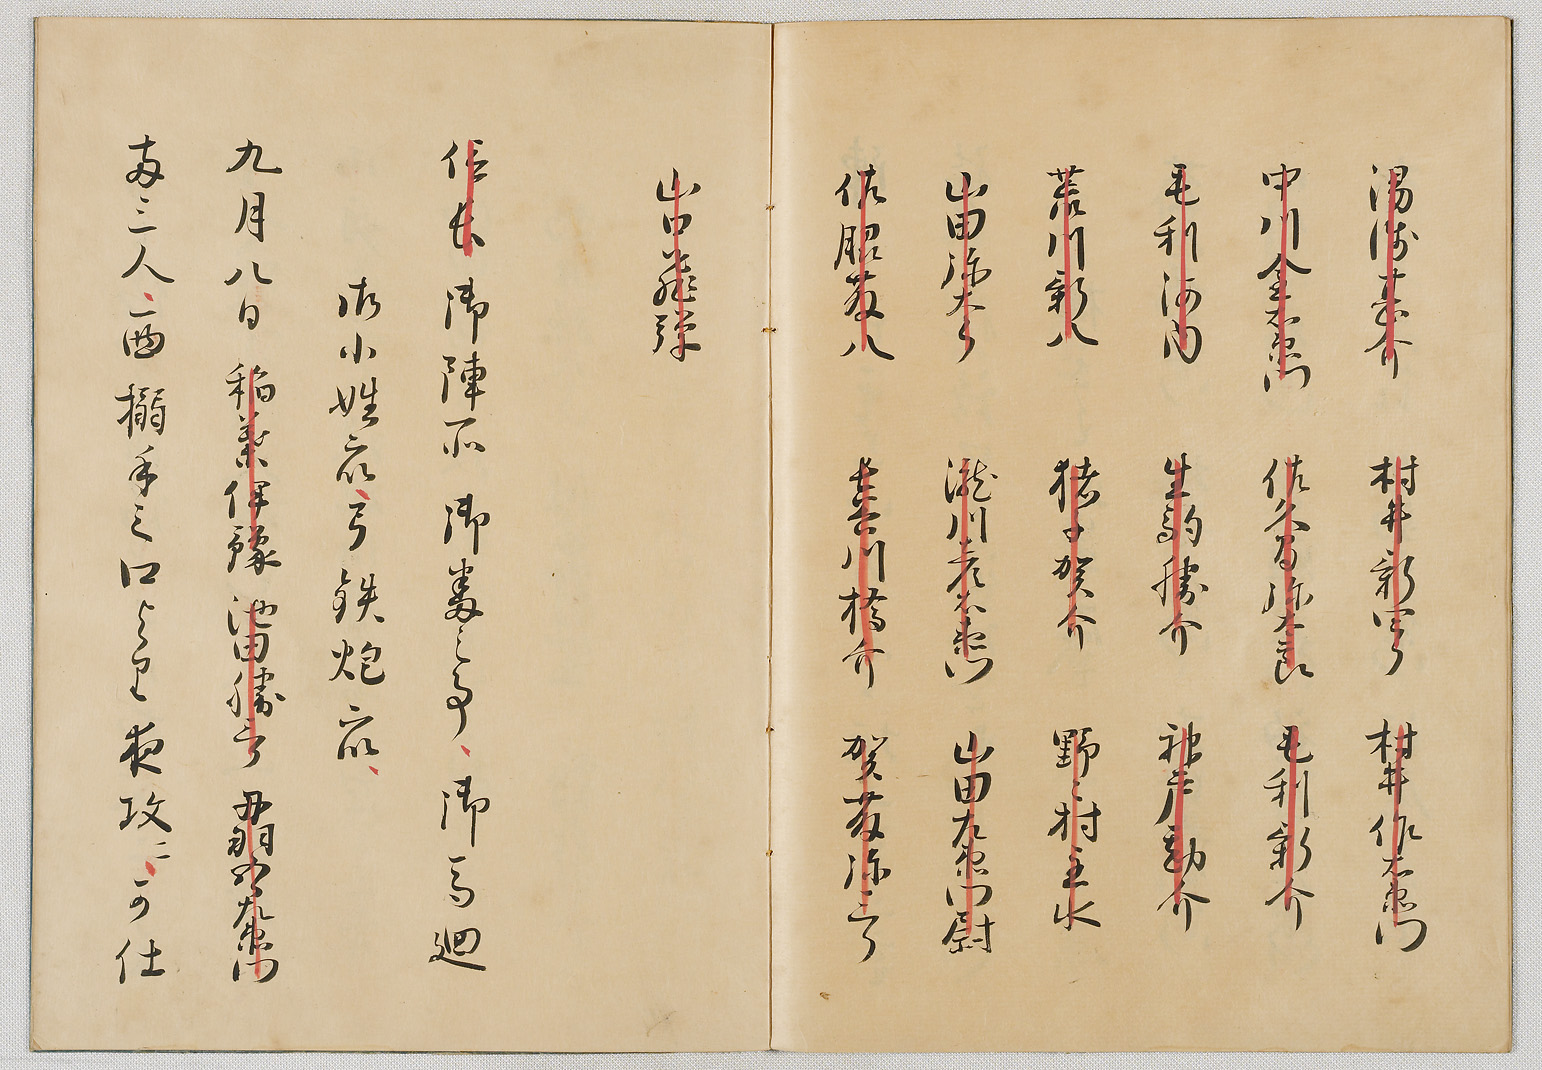 湯浅甚介 村井新四郎 村井作右衛門
中川金右衛門 佐久間弥太郎 毛利新介
毛利河内 生駒勝介 神戸勘介
荒川新八 猪子賀介 野々村主水
山田弥太郎 瀧川彦右衛門 山田左衛門尉
佐脇藤八 長谷川橋介 賀藤弥三郎
山口飛弾
信長御陣所御番之事、御馬廻
御小姓衆、弓鉄炮衆、
九月八日稲葉伊豫池田勝三郎丹羽五郎左衛門
両三人、ニ西搦手之口より夜攻ニ、可仕